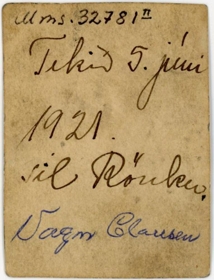 Mms. 32781 II
Tekið 5. júní
1921.
til Rönku.
Vagn Clausen